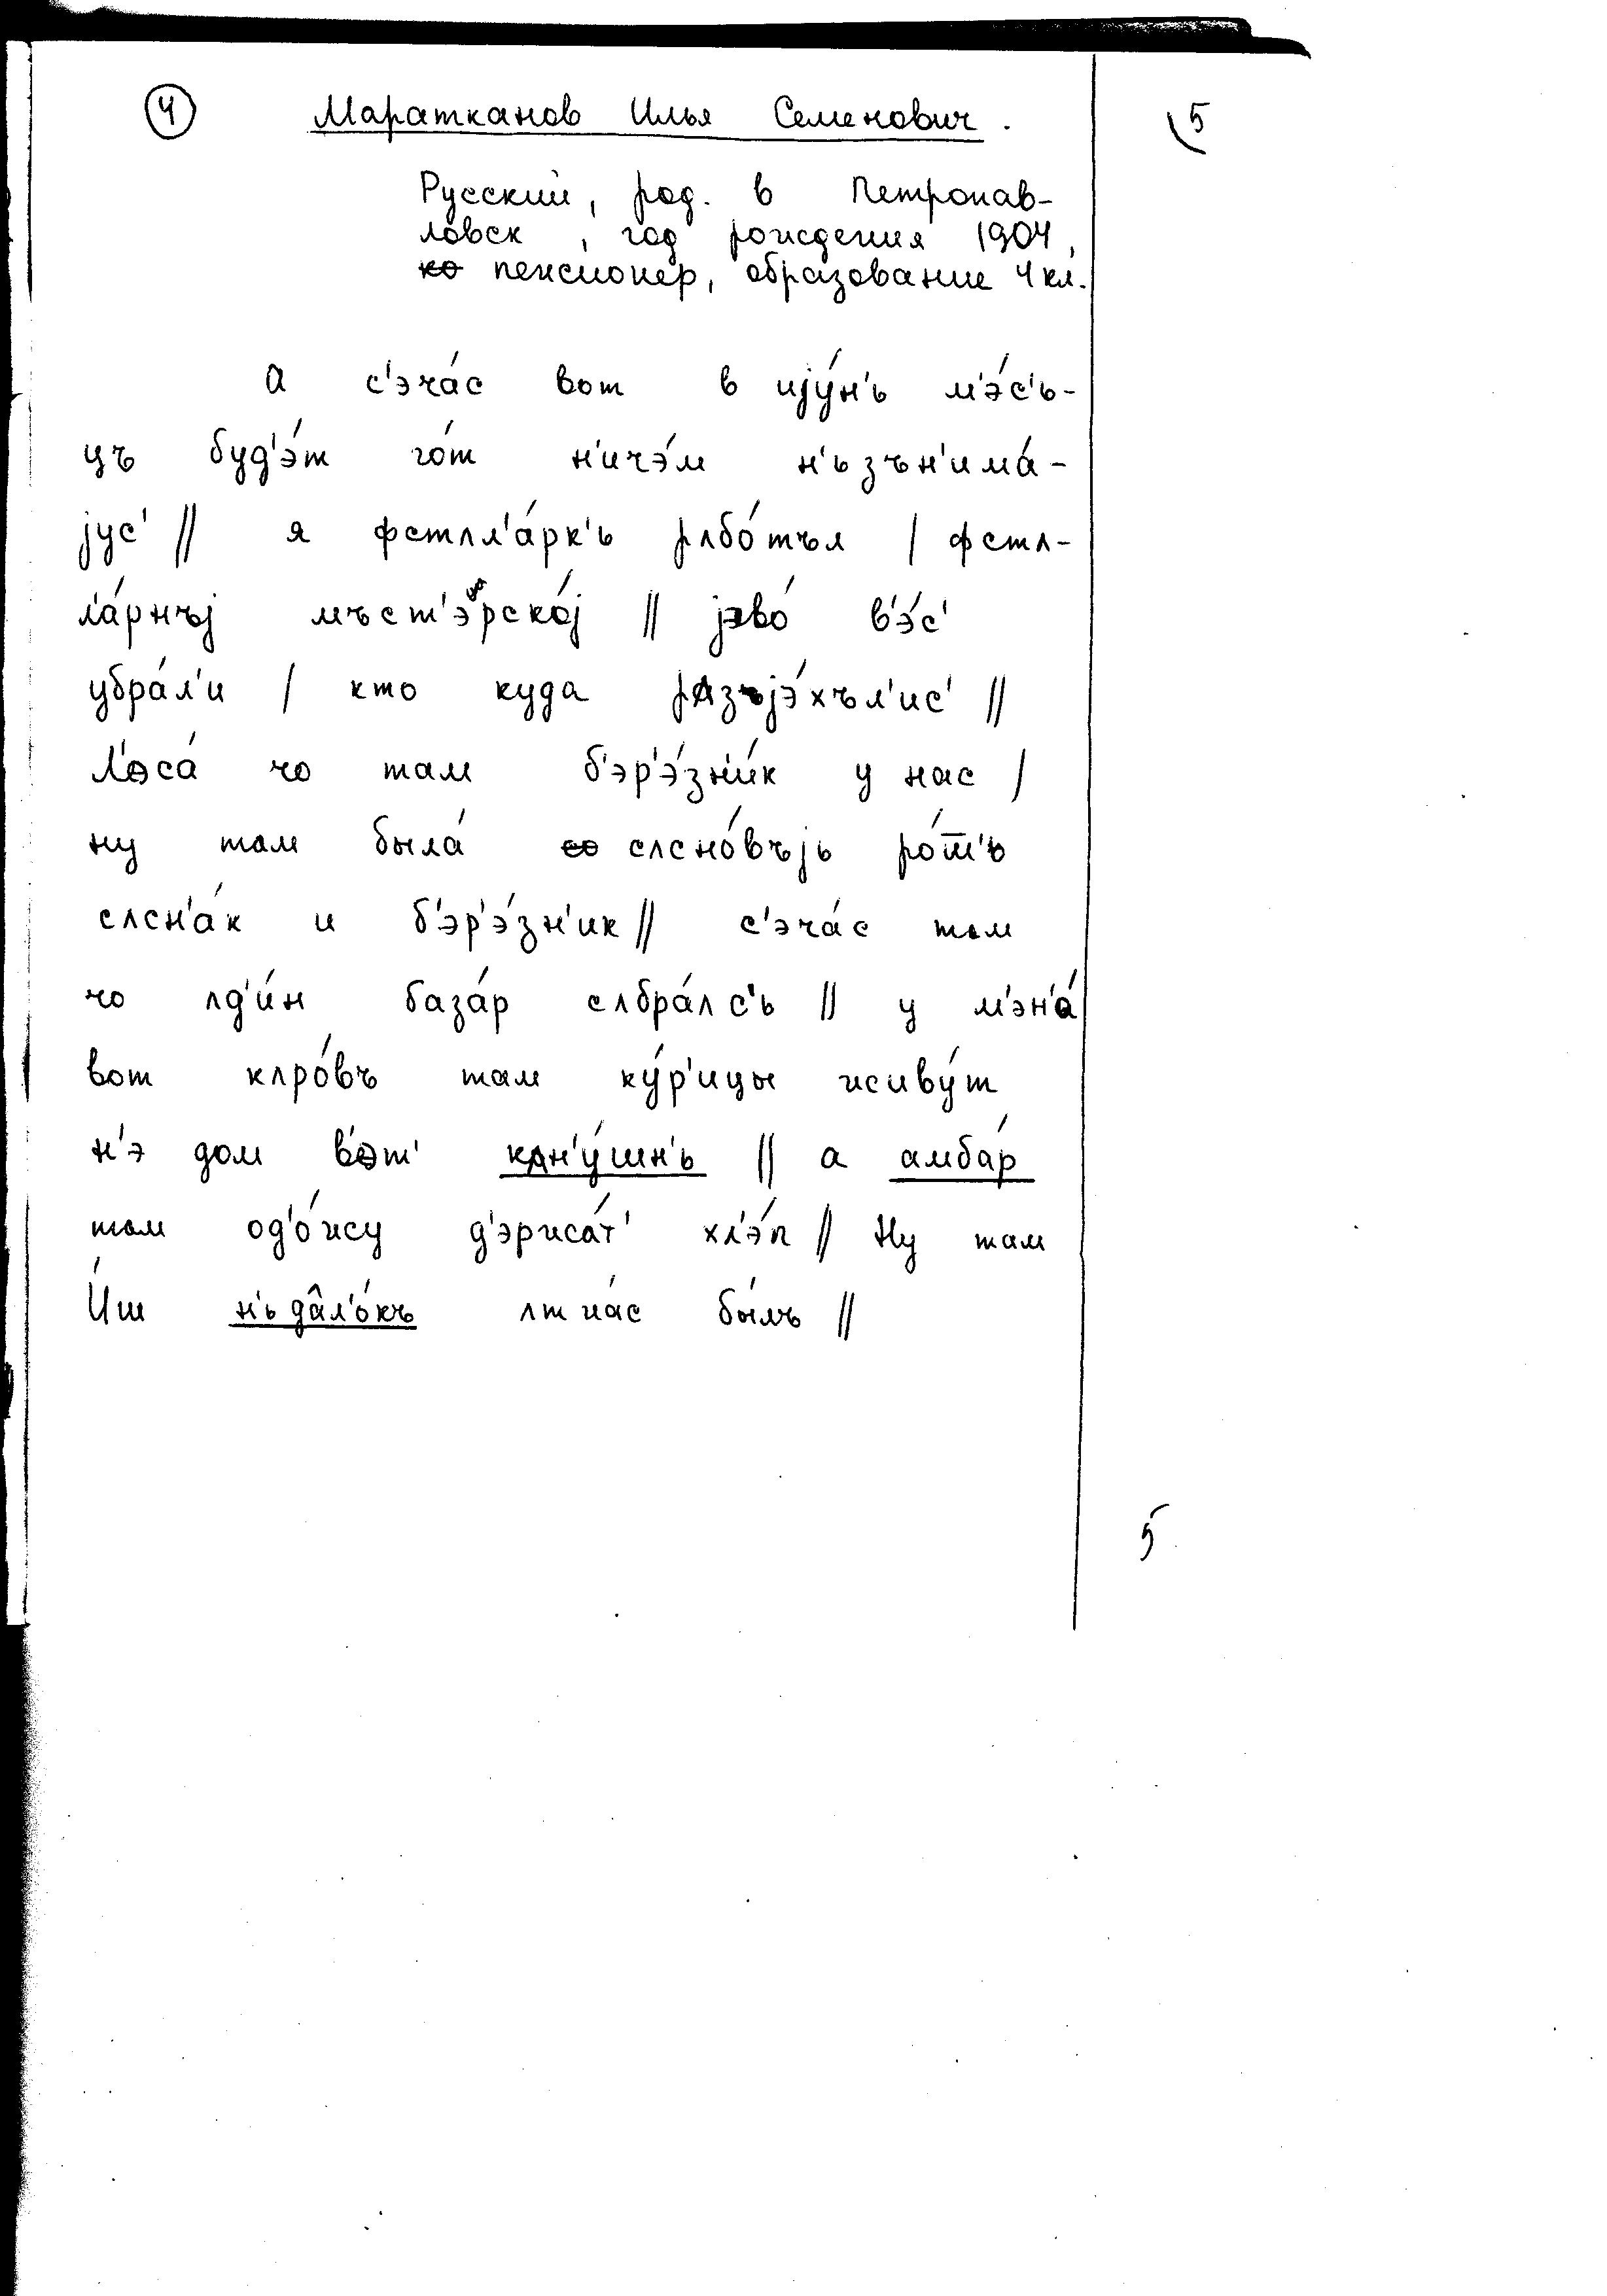 4 Маратканов Илья Семенович. 5
Русский, род. в Петропав-
ловск, год рождения 1904,
ко пенсионер, образование 4 кл.
А с'эча́с вот в иjу́н'ь м'э́с'ь-
цъ буд'э́т го́т н'ичэ́м н'ьзън'има́-
jус' // я фстʌл'а́рк'ь рʌбо́тъл / фстʌ-
л'а́рнъj мъст'эрско́j // jэво́ в'э́с'
убра́л'и / кто куда рʌзъjэ́хъл'ис' //
Л'эса́ чо там б'эр'э́зн'и́к у нас /
ну там была́ со сʌсно́въjь ро́т'ь
сʌсн'а́к и б'эр'э́зн'ик // с'эча́с там
чо ʌд'и́н база́р сʌбра́лс'ь // у м'эн'а́
вот кʌро́въ там ку́р'ицы живу́т
н'э дом вот' кʌн'у́шн'ь // а амба́р
там од'о́жу д'эржа́т' хл'э́п // Ну там
И́ш н'ьдâл'о́къ ʌт на́с бы́лъ //
5